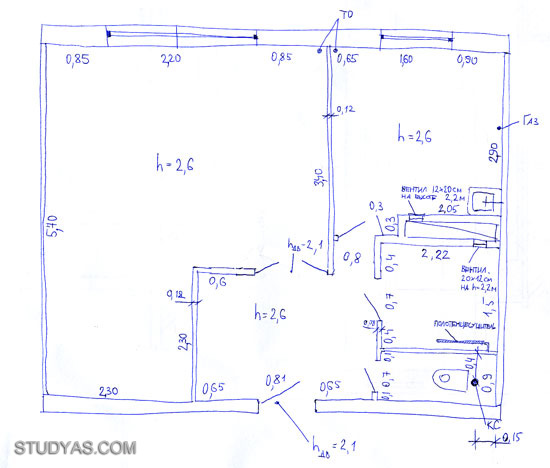 ТО
0,85
2,20
0,85
0,65
1,60
0,90
0,12
ГАЗ
h=2,6
h=2,6
2,90
3,40
ВЕНТИЛ 12×20см
НА ВЫСОТЕ 2,2м
2,05
0,3
0,3
5,70
hдв-2,1
0,8
0,4
2,22
ВЕНТИЛ.
20×12см
НА h=2,2м
0,6
0,12
h=2,6
0,7
1,5
0,08
0,4
ПОЛОТЕНЦЕСУШИТЕЛЬ
2,30
0,1
0,4
2,30
0,65
0,81
0,65
0,7
0,1
0,9
КС
0,15
hдв=2,1
STUDYAS.COM